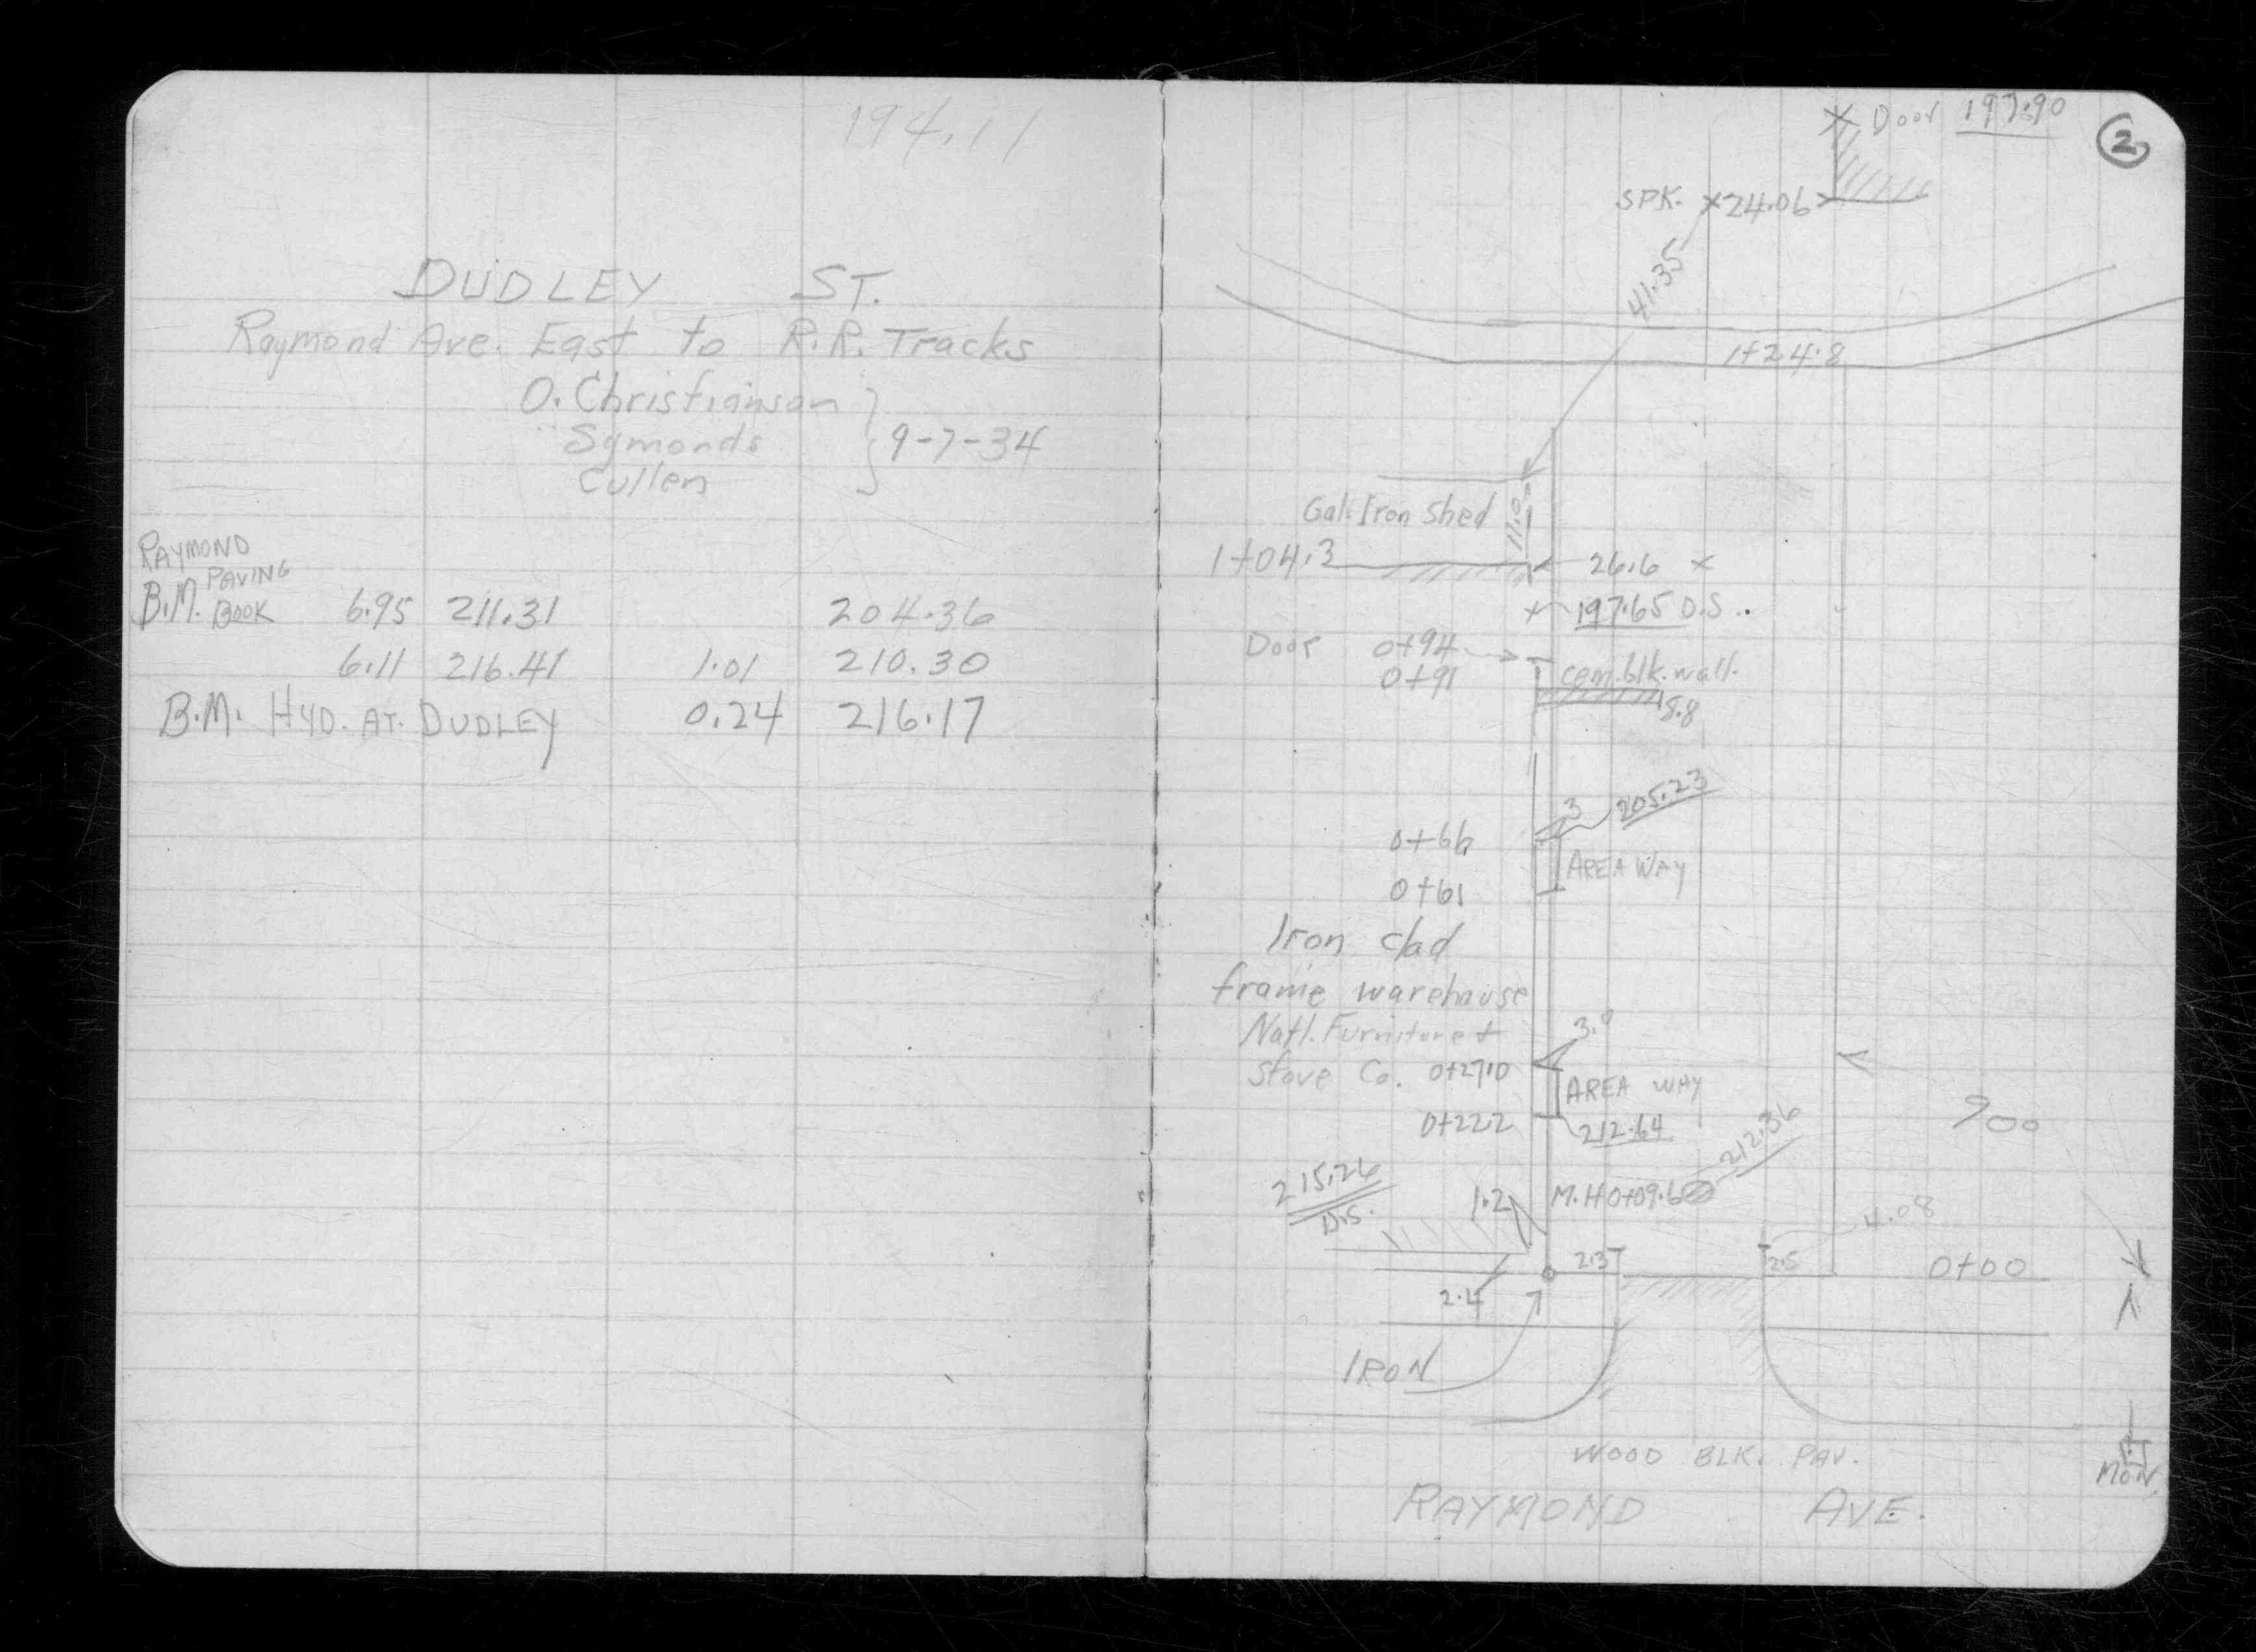 194.11
DUDLEY ST.
Raymond Ave. East to R.R. Tracks
O. Christianson
Symonds
Cullen
9-7-34
RAYMOND
PAVING
B.M. BOOK 6.95 211.31 204.36
6.11 216.41 1.01 210.30
B.M. HYD. AT. DUDLEY 0.24 216.17
Door 197.90
2
SPK. 24.06
41.35
1+24.8
Gal. Iron Shed
11.0
1+04.3
26.6
197.65 D.S.
Door 0+94
0+91
cem. blk. wall.
8.8
3
205.23
0+66
AREA WAY
0+61
Iron clad
frame warehouse
Natl. Furniture +
Stove Co. 0+27.0
3.0
AREA WAY
0+22.2
212.64
212.36
900
215.26
D.S.
1.2
M.H 0+09.6
4.08
2.3
2.5
0+00
2.4
IRON
WOOD BLK. PAV.
MON.
RAYMOND AVE.